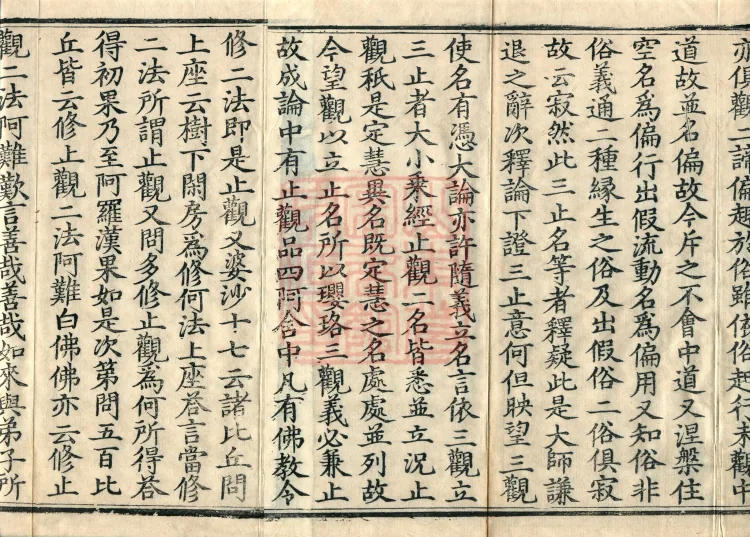 亦俱觀二諦偏起於俗雖依俗起行未觀中
道故並名偏故今斥之不會中道又涅槃住
空名爲偏行出假流動名爲偏用又知俗非
俗義通二種緣生之俗及出假俗二俗俱寂
故云寂然此三止名等者釋疑此是大師謙
退之辭次釋論下證三止意何但映望三觀
使名有憑大論亦許隨義立名言依三觀立
三止者大小乘經止觀二名皆悉並立況止
觀秖是定慧異名既定慧之名處處並列故
今望觀以立止名所以瓔珞三觀義必兼止
故成論中有止觀品四阿含中凡有佛教令
修二法即是止觀又婆沙十七云諸比丘問
上座云樹下閑房爲修何法上座荅言當修
二法所謂止觀又問多修止觀爲何所得荅
得初果乃至阿羅漢果如是次第問五百比
丘皆云修止觀二法阿難白佛佛亦云修止
觀二法阿難歎言善哉善哉如來與弟子所